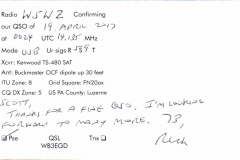 Radio W5WZ Confirming
our QSO of 19, APRIL 2017
at 0024 UTC 14.135 MHz
Mode USB Ur sigs R 5 S 9 T
Xcvr: Kenwood TS-480 SAT
Ant: Buckmaster OCF dipole up 30 feet
ITU Zone: 8 Grid Square: FN20ax
CQ DX Zone: 5 US PA County: Luzerne
SCOTT,
THANKS FOR A FINE QSO. I'M LOOKING
FORWARD TO MANY MORE. 73,
Rich
Pse QSL Tnx
WB3EGD